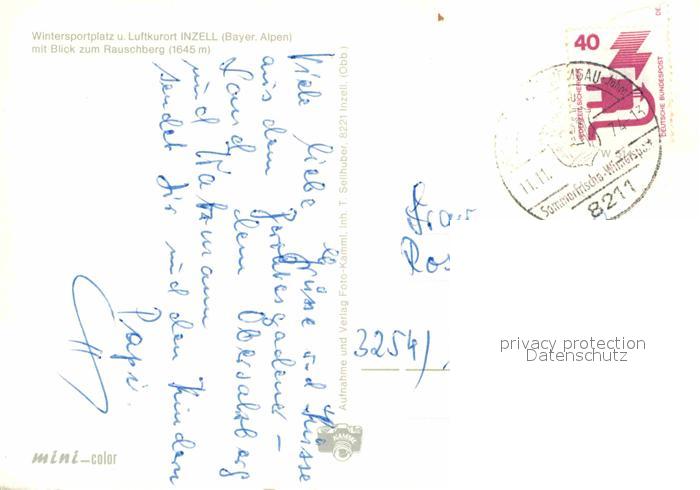 Wintersportplatz u. Luftkurort INZELL (Bayer. Alpen)
mit Blick zum Rauschberg (1645 m)
Viele liebe Grüsse und Küsse
aus dem Berchtesgadener-
Land, dem Obersalzberg
und Watzmann
sendet Dir und den Kindern
Papi.
Aufnahme und Verlag Foto-Kamml, Inh. T. Sellhuber, 8221 Inzell. (Obb.)
KAMML
mini-color
40
DEUTSCHE BUNDESPOST
DE
11.11.
Sommerfrische-Wintersport
8211
3254/
privacy protection
Datenschutz